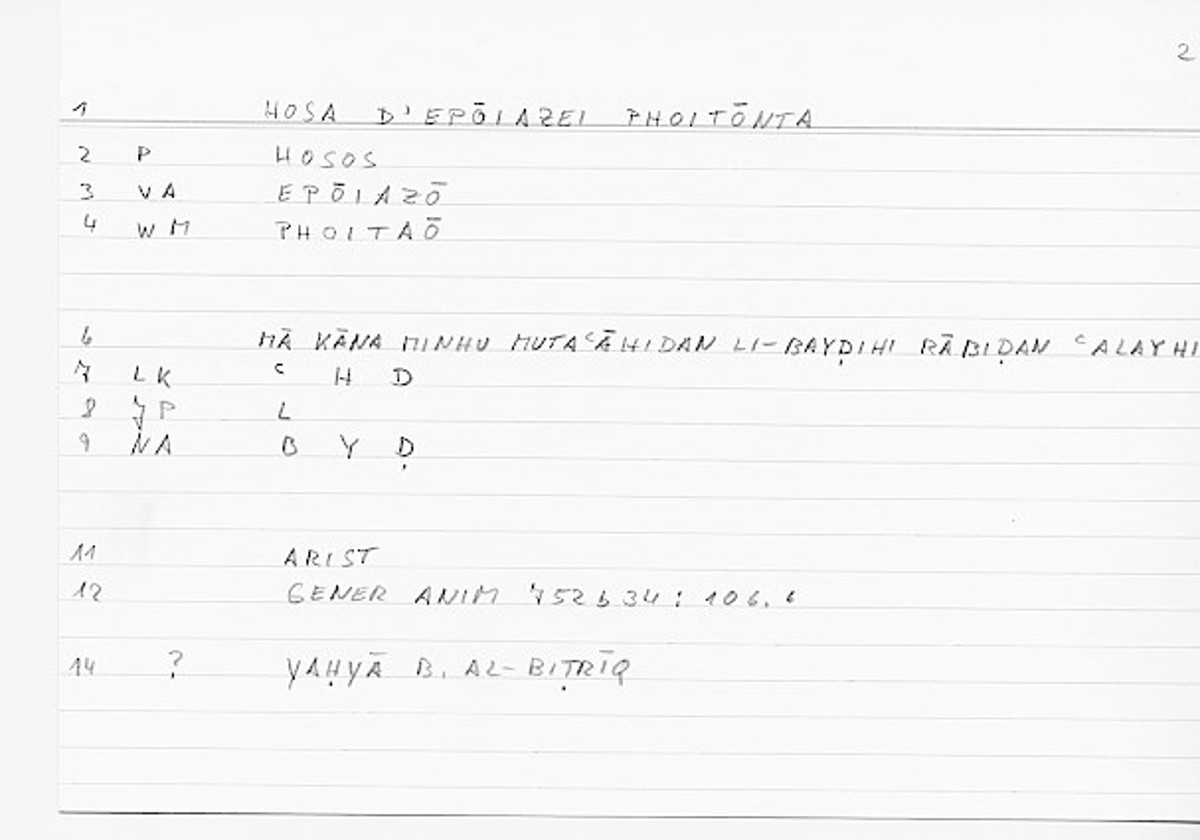 2
1 HOSA D'EPŌIAZEI PHOITŌNTA
2 P HOSOS
3 VA EPŌIAZŌ
4 WM PHOITAŌ
6 MĀ KĀNA MINHU MUTAʿĀHIDAN LI-BAYḌIHI RĀBIḌAN ʿALAYHI
7 LK ʿ H D
8 JP L
9 NA B Y Ḍ
11 ARIST
12 GENER ANIM 752b34: 106.6
14 ? YAḤYĀ B. AL-BIṬRĪQ